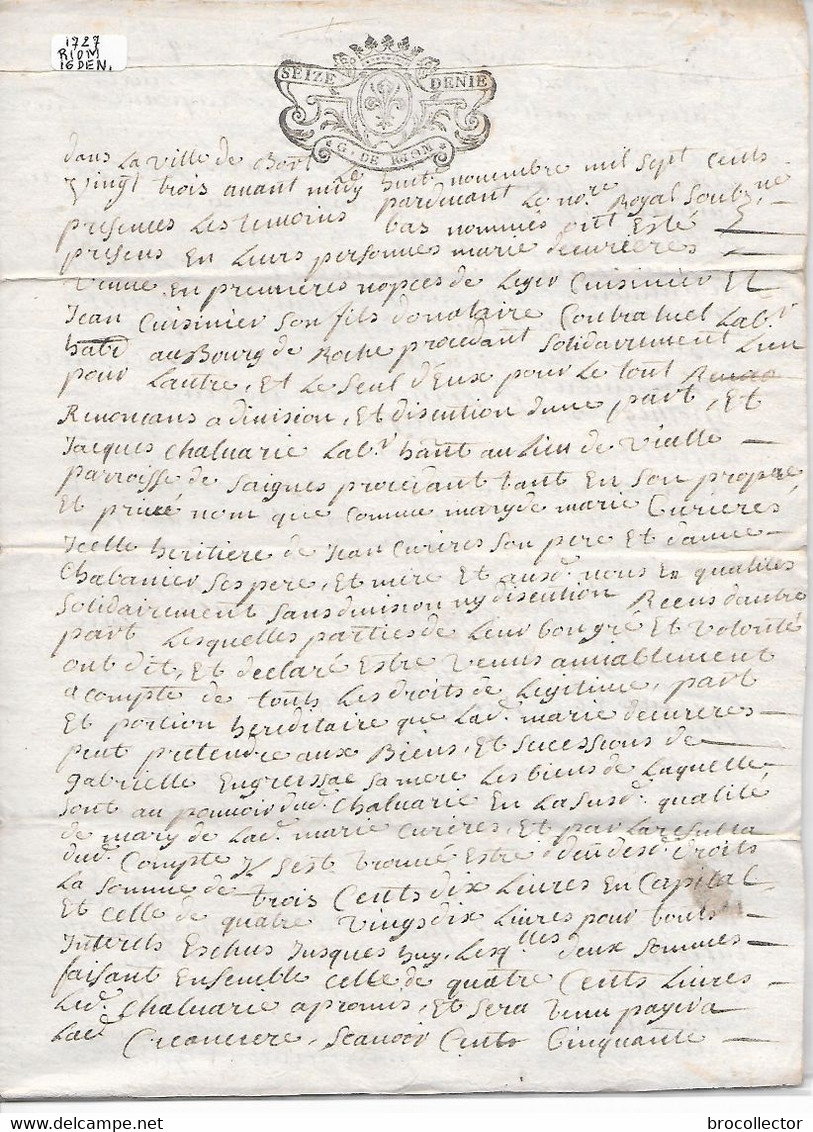 1727
RIOM
16 DEN.
SEIZE DENIE
G. DE RIOM
dans La ville de Bort Le huit novembre mil sept cents
vingt trois avant midy pardevant Le no.re Royal Soubz.ne
presences Les temoins bas nommés ont Esté
presens En Leurs personnes marie decurieres
veuve En premieres nopces de Leger Cuisinier Et
Jean Cuisinier Son fils donataire Contratuel Lab.r
habt au Bourg de Roche procedant Solidairement L'un
pour Lautre, Et Le Seul d'Eux pour Le tout
Renoncans a division, Et discution dune part, Et
Jacques Chaluarie Lab.r hant au Lieu de Vialle
parroisse de Saignes procedant tant En Son propre
Et privé nom que comme mary de marie Curieres
Icelle heritiere de Jean Cureres Son pere Et danne
Chabanier Ses pere, Et mere Et ausd. noms En qualites
Solidairement Sans division ny discution dautre
part Lesquelles parties de Leur bon gré Et volonté
ont dit, Et declaré Estre venus amiablement
a compte de touts Les droits de Legitime, part
Et portion hereditaire que Lad. marie decureres
peut pretendre aux Biens, Et Sucessions de
gabrielle Sa mere Les biens de Laquelle
Sont au pouvoir dud. Chaluarie En La Susd. qualité
de mary de Lad. marie Cureres, Et par La resulta
dud. Compte Il S'est trouvé Estre deu desd. droits
La Somme de trois Cents dix Livres En Capital
Et celle de quatre vings dix Livres pour touts
Interets Escheus Jusques huy, Lesq.lles deux Sommes
faisant Ensemble celle de quatre Cents Livres
Led. Chaluarie a promis, Et Sera tenu payera
Lad. Creanciere, Scavoir Cents Cinquante
brocollector